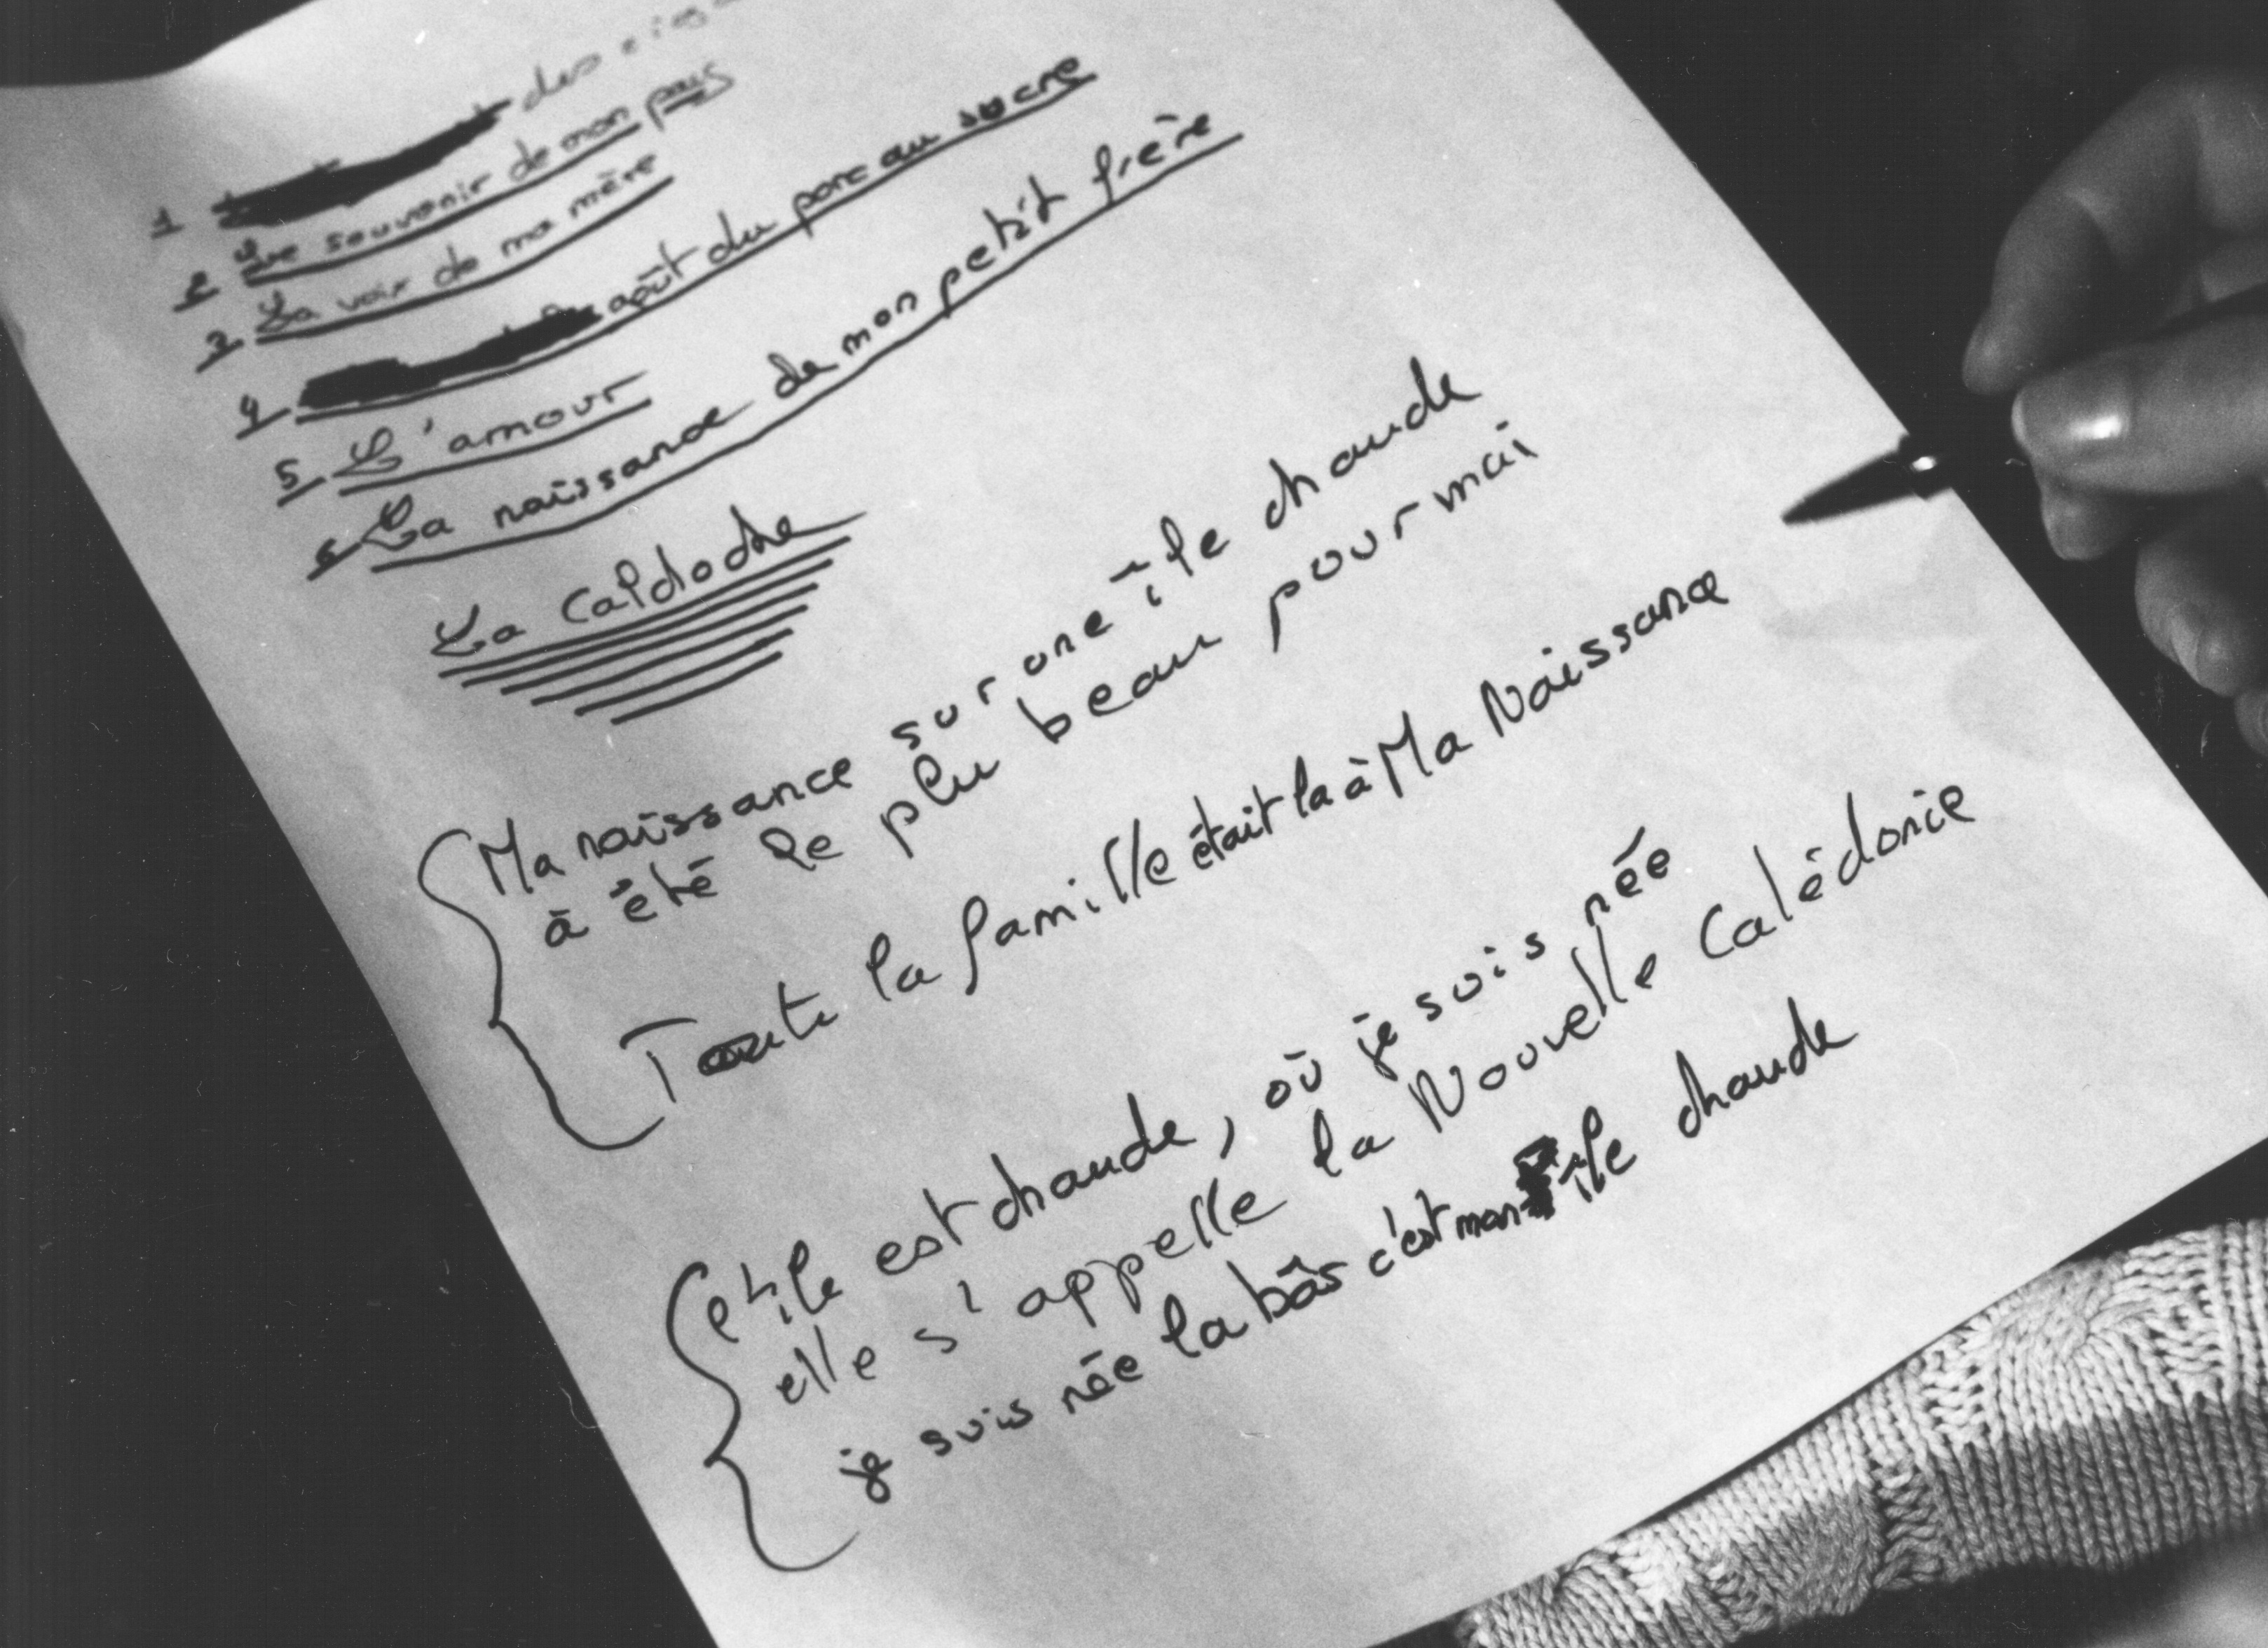 1 des
2 Le souvenir de mon pays
3 La voix de ma mère
4 goût du porc au sucre
5 L'amour
6 La naissance de mon petit frère
La Caldoche
Ma naissance sur une île chaude
à été le plu beau pour moi
Toute la famille était la à Ma Naissance
Cet île est chaude, où je suis née
elle s'appelle la Nouvelle Calédonie
je suis née la bàs c'est mon île chaude